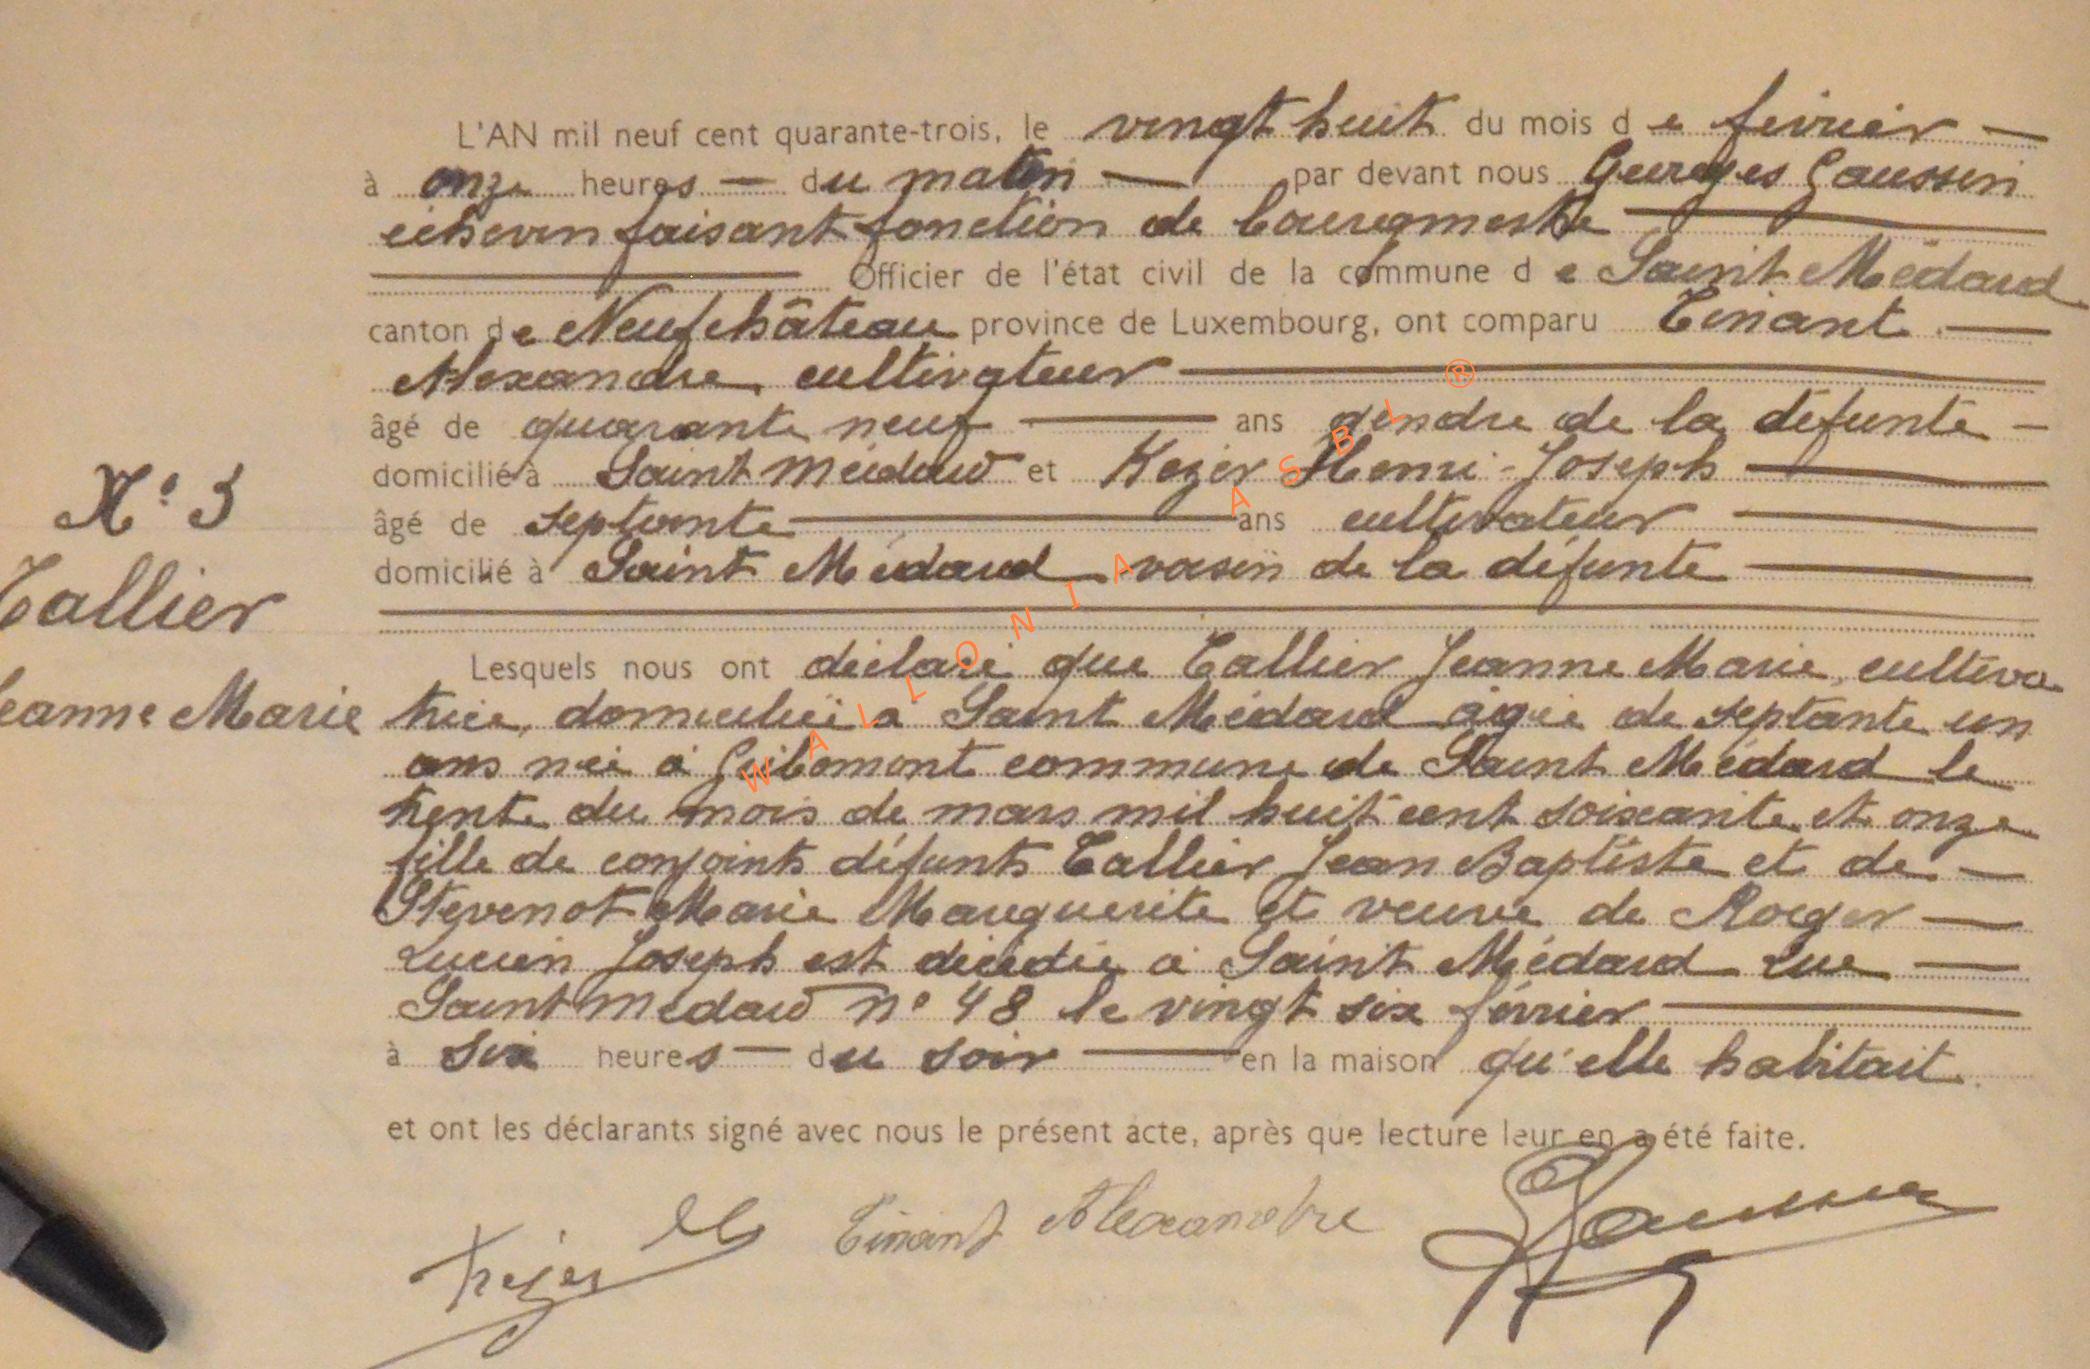 L'AN mil neuf cent quarante-trois, le vingt huit du mois de février —
à onze heures — du matin — par devant nous Georges Gaussin
échevin faisant fonction de bourgmestre
Officier de l'état civil de la commune de Saint Médard
canton de Neufchâteau province de Luxembourg, ont comparu Tinant —
Alexandre, cultivateur
âgé de quarante neuf — ans gendre de la défunte —
domicilié à Saint Médard et Kezer Henri-Joseph
âgé de septante ans cultivateur
domicilié à Saint Médard voisin de la défunte
N° 3
Tallier
Jeanne Marie
Lesquels nous ont déclaré que Tallier Jeanne Marie, cultiva
trice, domiciliée à Saint Médard âgée de septante un
ans née à Gribomont commune de Saint Médard le
trente du mois de mars mil huit cent soixante et onze
fille de conjoints défunts Tallier Jean Baptiste et de —
Stevenot Marie Marguerite et veuve de Roeger —
Lucien Joseph est décédée à Saint Médard rue —
Saint Médard n° 48 le vingt six février
à six heures — du soir — en la maison qu'elle habitait
et ont les déclarants signé avec nous le présent acte, après que lecture leur en a été faite.
Tinant Alexandre
WALLONIA ASBL ®